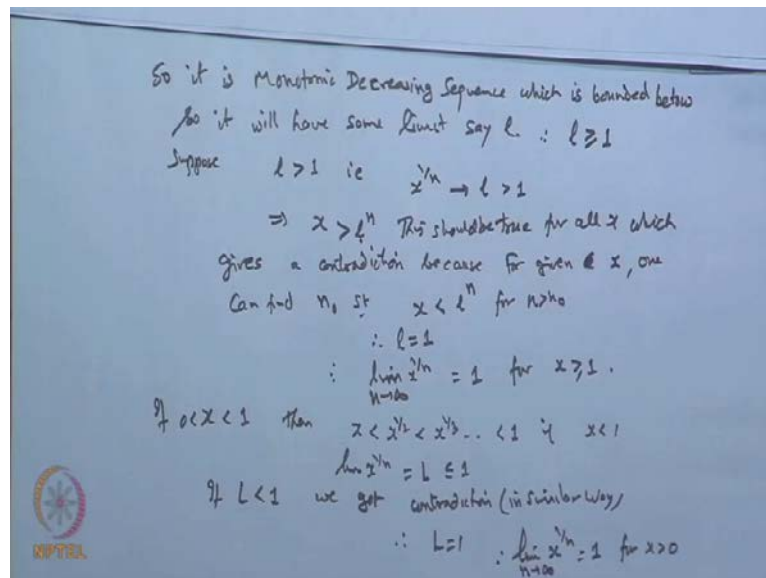 So it is Monotonic Decreasing Sequence which is bounded below
So it will have some limit say l. ∴ l ≥ 1
Suppose l > 1 ie x^{1/n} → l > 1
⇒ x > l^n This should be true for all x which
gives a contradiction because for given x, one
Can find n₀ st x < l^n for n > n₀
∴ l = 1
∴ lim_{n→∞} x^{1/n} = 1 for x ≥ 1.
If 0 < x < 1 then x < x^{1/2} < x^{1/3} .. < 1 if x < 1
lim x^{1/n} = L ≤ 1
If L < 1 we get contradiction (in similar way)
∴ L = 1 ∴ lim_{n→∞} x^{1/n} = 1 for x > 0
NPTEL